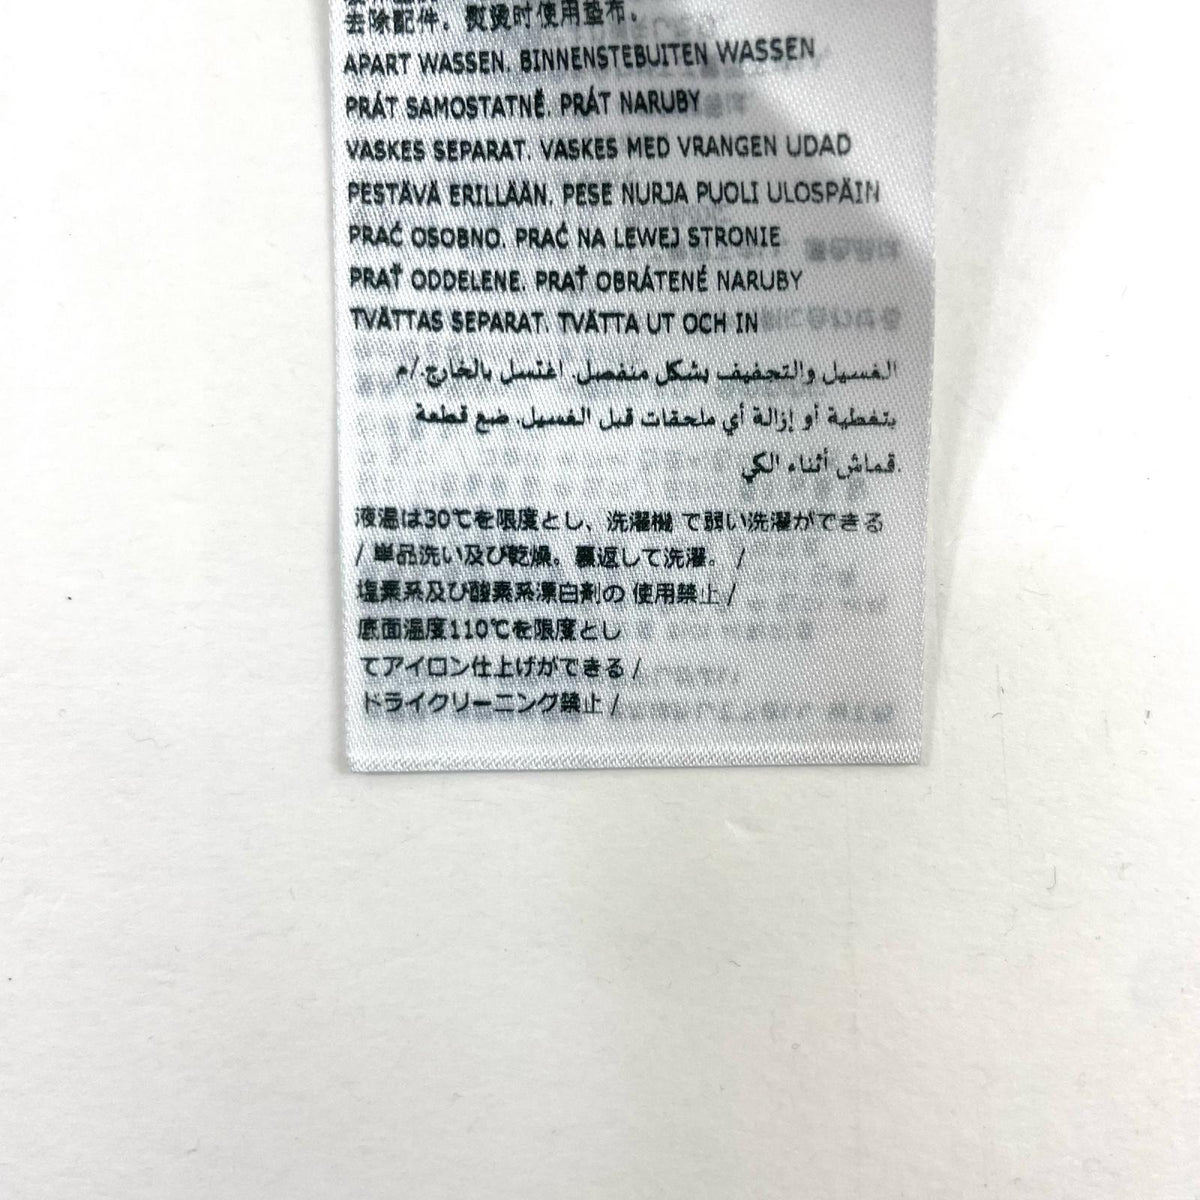 去除配件。熨烫时使用垫布。
APART WASSEN. BINNENSTEBUITEN WASSEN
PRÁT SAMOSTATNĚ. PRÁT NARUBY
VASKES SEPARAT. VASKES MED VRANGEN UDAD
PESTÄVÄ ERILLÄÄN. PESE NURJA PUOLI ULOSPÄIN
PRAĆ OSOBNO. PRAĆ NA LEWEJ STRONIE
PRAŤ ODDELENE. PRAŤ OBRÁTENÉ NARUBY
TVÄTTAS SEPARAT. TVÄTTA UT OCH IN
الغسيل والتجفيف بشكل منفصل. اغتسل بالخارج./م
بتغطية أو إزالة أي ملحقات قبل الغسيل. ضع قطعة
قماش أثناء الكي.
液温は30℃を限度とし、洗濯機 で弱い洗濯ができる
/ 単品洗い及び乾燥。裏返して洗濯。 /
塩素系及び酸素系漂白剤の 使用禁止 /
底面温度110℃を限度とし
てアイロン仕上げができる /
ドライクリーニング禁止 /